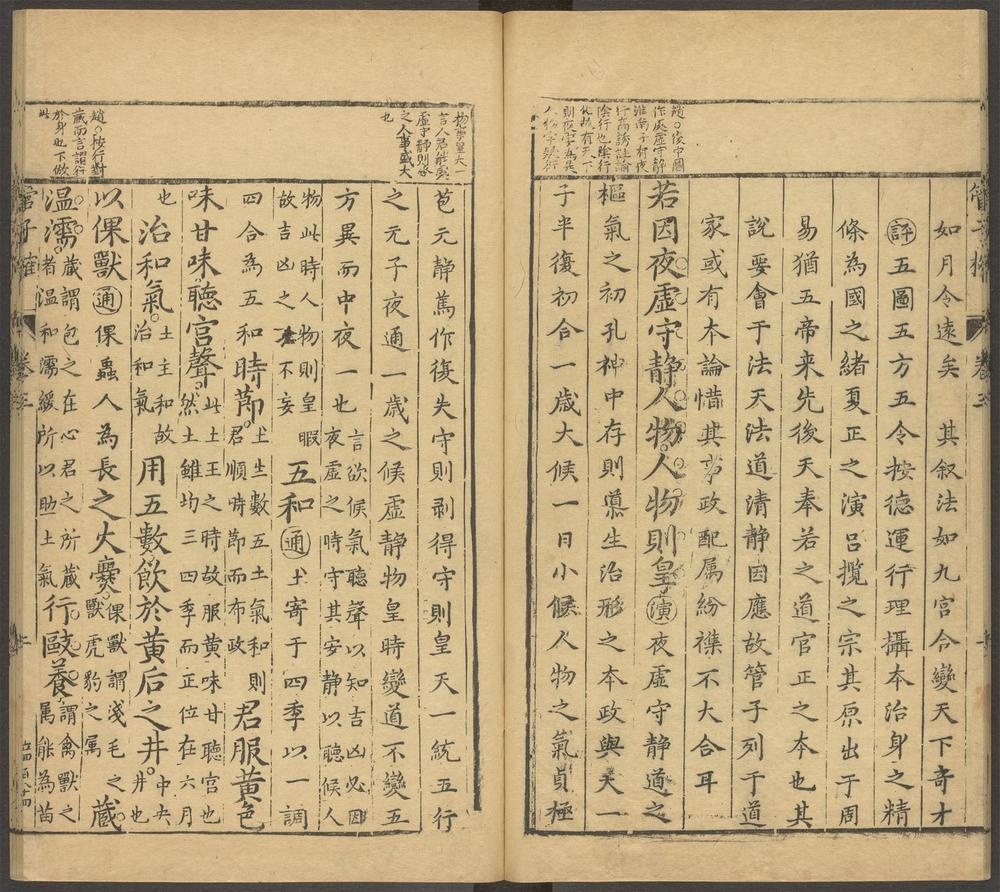 趙〇後中圖
作處虛守靜
淮南子有夜
行高誘註諭
陰行也陰行
化故有天下
則夜字為是
如月令遠矣　其叙法如九宮合變天下奇才
評五圖五方五令按德運行理攝本治身之精
條為國之緒夏正之演呂攬之宗其原出于周
易猶五帝来先後天奉若之道官正之本也其
說要會于法天法道清静因應故管子列于道
家或有本論惜其事政配属紛襍不大合耳
若因夜虛守静人物人物則皇演夜虛守静道之
樞氣之初孔神中存則𢡟生治形之本政與天一
子半復初合一歲大候一日小候人物之氣貞極
言人君能處
虛守靜則
之人事盛大
也
趙〇按行對
藏而言謂行
於身也下倣
此
苞元静篤作復失守則剥得守則皇天一統五行
之元子夜通一歲之候虛静物皇時變道不變五
方異而中夜一也言欲候氣聽聲以知吉凶必因夜虛之時守其安静以聽候人
物此時人物則皇暇故吉凶之不妄五和通土寄于四季以一調
四合為五和時節土生數五土氣和則君順時節而布政君服黄色
味甘味聽宮聲此土王之時故服黄味甘聽宮也然土雖均三四季而正位在六月
也治和氣土主和故治和氣用五數飲於黄后之井中央井也
以倮獸通倮蟲人為長之火爨倮獸謂淺毛之獸虎豹之屬藏
温濡藏謂包之在心君之所藏者温和濡緩所以助土氣行敺養謂禽獸之属能為苗
管子榷　卷三